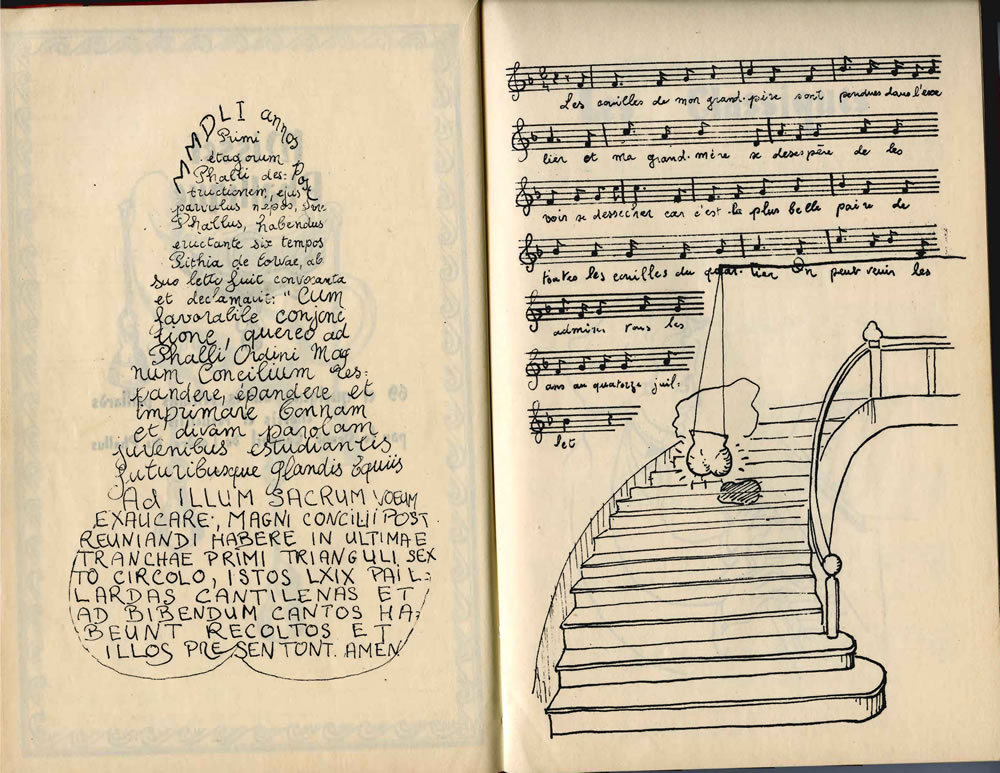 MMDLI annos Post
Primi
etagorum
Phalli des:
tructionem, ejus
parvulus nepos, Sine
Phallus, habendus
eructante six tempos
Pithia de torvae, ab
suo letto fuit convocanta
et declamavit: "Cum
favorabile conjonc
tione, quereo ad
Phalli Ordini Mag
num Concilium Res:
pandere, épandere et
imprimare bonnam
et divam parolam
juvenibus estudiantis
futuribusque glandis Equiis
Ad ILLUM SACRUM VOEUM
EXAUCARE, MAGNI CONCILII POST
REUNIANDI HABERE IN ULTIMAE
TRANCHAE PRIMI TRIANGULI SEX
TO CIRCOLO, ISTOS LXIX PAIL:
LARDAS CANTILENAS ET
AD BIBENDUM CANTOS HA:
BEUNT RECOLTOS ET
ILLOS PRESENTONT. AMEN
Les couilles de mon grand-père sont pendues dans l'esca
lier et ma grand-mère se desespère de les
voir se dessecher car c'est la plus belle paire de
toutes les couilles du quar-tier On peut venir les
admirer tous les
ans au quatorze juil-
let